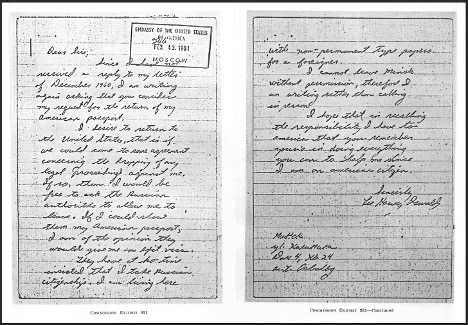 EMBASSY OF THE UNITED STATES
FEB 13 1961
MOSCOW
Dear Sirs;
Since I have not
received a reply to my letter
of December 1960, I am writing
again asking that you consider
my request for the return of my
American passport.
I desire to return to
the United States, that is if
we could come to some agreement
concerning the dropping of any
legal proceedings against me.
If so, then I would be
free to ask the Russian
authorities to allow me to
leave. If I could show
them my American passport,
I am of the opinion they
would give me an exit visa.
They have at no time
insisted that I take Russian
citizenship. I am living here
COMMISSION EXHIBIT 931
with non-permanent type papers
for a foreigner.
I cannot leave Minsk
without permission, therefore I
am writing rather than calling
in person.
I hope that in recalling
the responsibility I have to
america that you remember
yours in doing everything
you can to help me since
I am an american citizen.
Sincerely
Lee Harvey Oswald
COMMISSION EXHIBIT 931—Continued